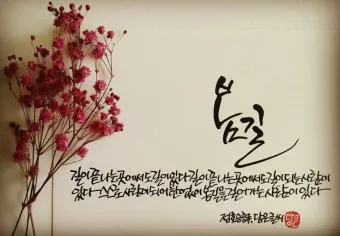 봄길
길이 끝나는 곳에서도 길이 있다 길이 끝나는 곳에서도 길이 되는 사람이
있다 스스로 사랑이 되어 한없이 봄길을 걸어가는 사람이 있다
정호승 詩,